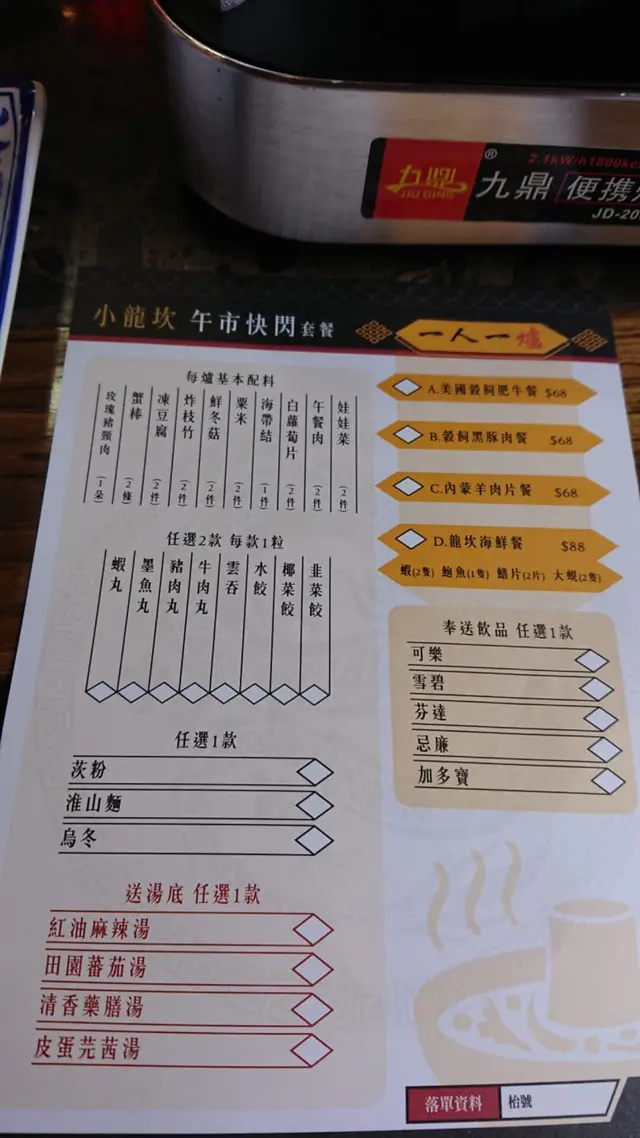 九鼎
JIU DING
®
2.1kW/h1800kc
九鼎 便携
JD-20
小龍坎 午市快閃套餐
一人一爐
每爐基本配料
玫瑰豬頸肉 (1朵)
蟹棒 (2條)
凍豆腐 (2件)
炸枝竹 (2件)
鮮冬菇 (2件)
粟米 (2件)
海帶結 (1件)
白蘿蔔片 (2件)
午餐肉 (2件)
娃娃菜 (2件)
任選2款 每款1粒
蝦丸
墨魚丸
豬肉丸
牛肉丸
雲吞
水餃
椰菜餃
韭菜餃
任選1款
茨粉
淮山麵
烏冬
送湯底 任選1款
紅油麻辣湯
田園蕃茄湯
清香藥膳湯
皮蛋芫茜湯
A.美國穀飼肥牛餐 $68
B.穀飼黑豚肉餐 $68
C.內蒙羊肉片餐 $68
D.龍坎海鮮餐 $88
蝦(2隻) 鮑魚(1隻) 鯖片(2片) 大蜆(2隻)
奉送飲品 任選1款
可樂
雪碧
芬達
忌廉
加多寶
落單資料 枱號